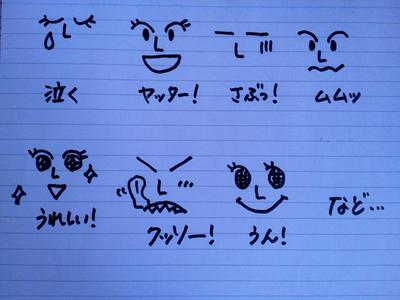 泣く
ヤッター!
さぶっ!
ムムッ
うれしい!
クッソー!
うん!
など…